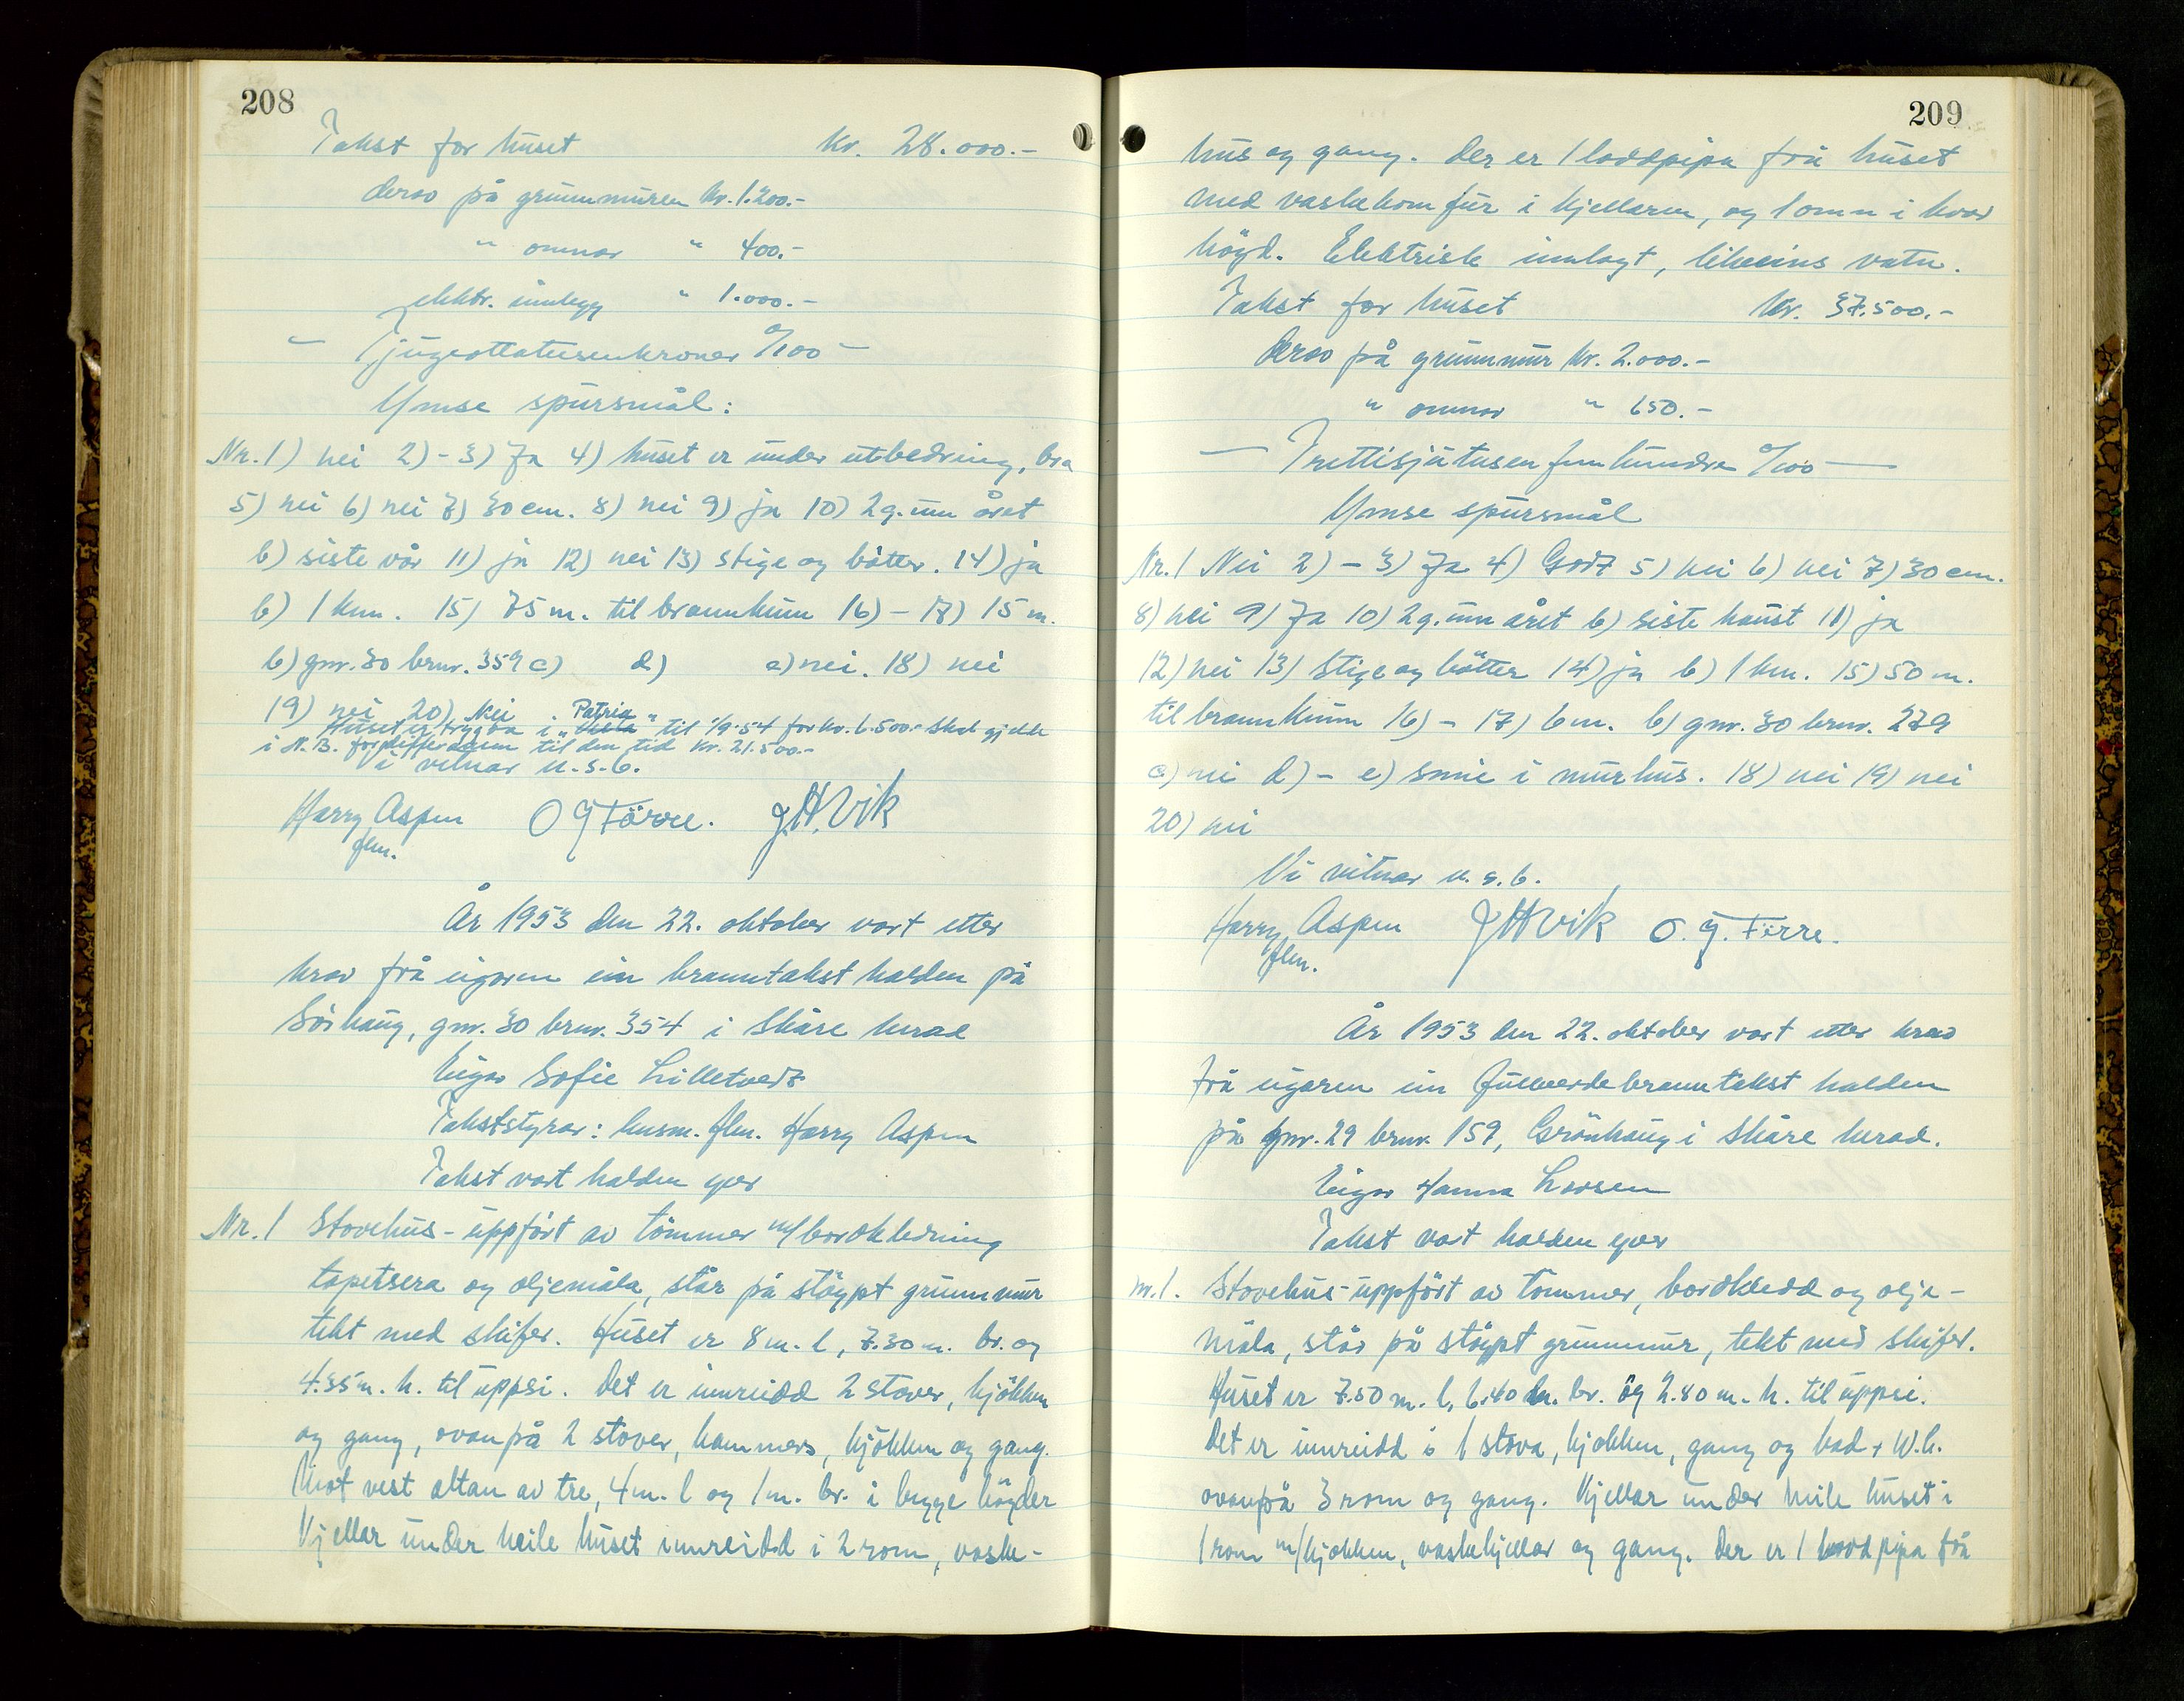 208
Takst for huset kr. 28.000.-
derav på grunnmuren kr. 1.200.-
" omnar " 400.-
elektr. innlegg " 1.000.-
- Tjugeottetusenkroner 0/100 -
Ymse spursmål:
Nr. 1) nei 2) - 3) Ja 4) huset er under utbedring, bra
5) nei 6) nei 7) 30 cm. 8) nei 9) ja 10) 2 g. um året
b) siste vår 11) ja 12) nei 13) stige og bøtter. 14) ja
b) 1 km. 15) 75 m. til brannkum 16) - 17) 15 m.
b) gnr. 30 brnr. 359 c) d) e) nei. 18) nei
19) nei 20) Nei
Huset er trygda i "Patria" til 1/9-54 for kr. 6.500.- Skal gjelde
i N.B. for differansen til den tid kr. 21.500.-
Vi vitnar u.s.b.
Harry Aspen O G Førre. J.H. Vik
flm.
År 1953 den 22. oktober vart etter
krav frå eigaren ein branntakst halden på
Sørhaug, gnr. 30 brnr. 354 i Skåre herad
Eigar Sofie Lilletvedt
Takststyrar: lensm. flm. Harry Aspen
Takst vart halden yver
Nr. 1 Stovehus - uppført av tømmer m/bordkledning
tapetsera og oljemåla, står på støypt grunnmur
tekt med skifer. Huset er 8 m. l, 7.30 m. br. og
4.35 m. h. til uppsi. Det er innreidd 2 stover, kjøkken
og gang, ovanpå 2 stover, kammers, kjøkken og gang.
Mot vest altan av tre, 4 m. l og 1 m. br. i begge høgder
Kjellar under heile huset innreidd i 2 rom, vaske-
209
hus og gang. Der er 1 loddpipa frå huset
med vaskekomfur i kjellaren, og 1 omn i kvar
høgd. Elektrisk innlagt, likeeins vatn.
Takst for huset kr. 37.500.-
derav på grunnmur kr. 2.000.-
" omnar " 650.-
- Trettisjutusenfemhundre 0/100 -
Ymse spursmål
Nr. 1 Nei 2) - 3) Ja 4) Godt 5) nei 6) nei 7) 30 cm.
8) nei 9) Ja 10) 2 g. um året b) siste haust 11) ja
12) nei 13) Stige og bøtter 14) ja b) 1 km. 15) 50 m.
til brannkum 16) - 17) 6 m. b) gnr. 30 brnr. 279
c) nei d) - e) smie i murhus. 18) nei 19) nei
20) nei
Vi vitnar u.s.b.
Harry Aspen J H Vik O. G. Førre.
flm.
År 1953 den 22. oktober vart etter krav
frå eigaren ein fullverdebranntakst halden
på gnr. 29 brnr. 159, Grønhaug i Skåre herad.
Eigar Hanna Larsen
Takst vart halden yver
nr. 1. Stovehus - uppført av tømmer, bordkledd og olje-
måla, står på støypt grunnmur, tekt med skifer.
Huset er 7.50 m. l, 6.40 m. br. og 2.80 m. h. til uppsi.
Det er innreidd i 1 stova, kjøkken, gang og bad + W.C.
ovanpå 3 rom og gang. Kjellar under heile huset i
1 rom m/kjøkken, vaskekjellar og gang. Der er 1 loddpipa frå